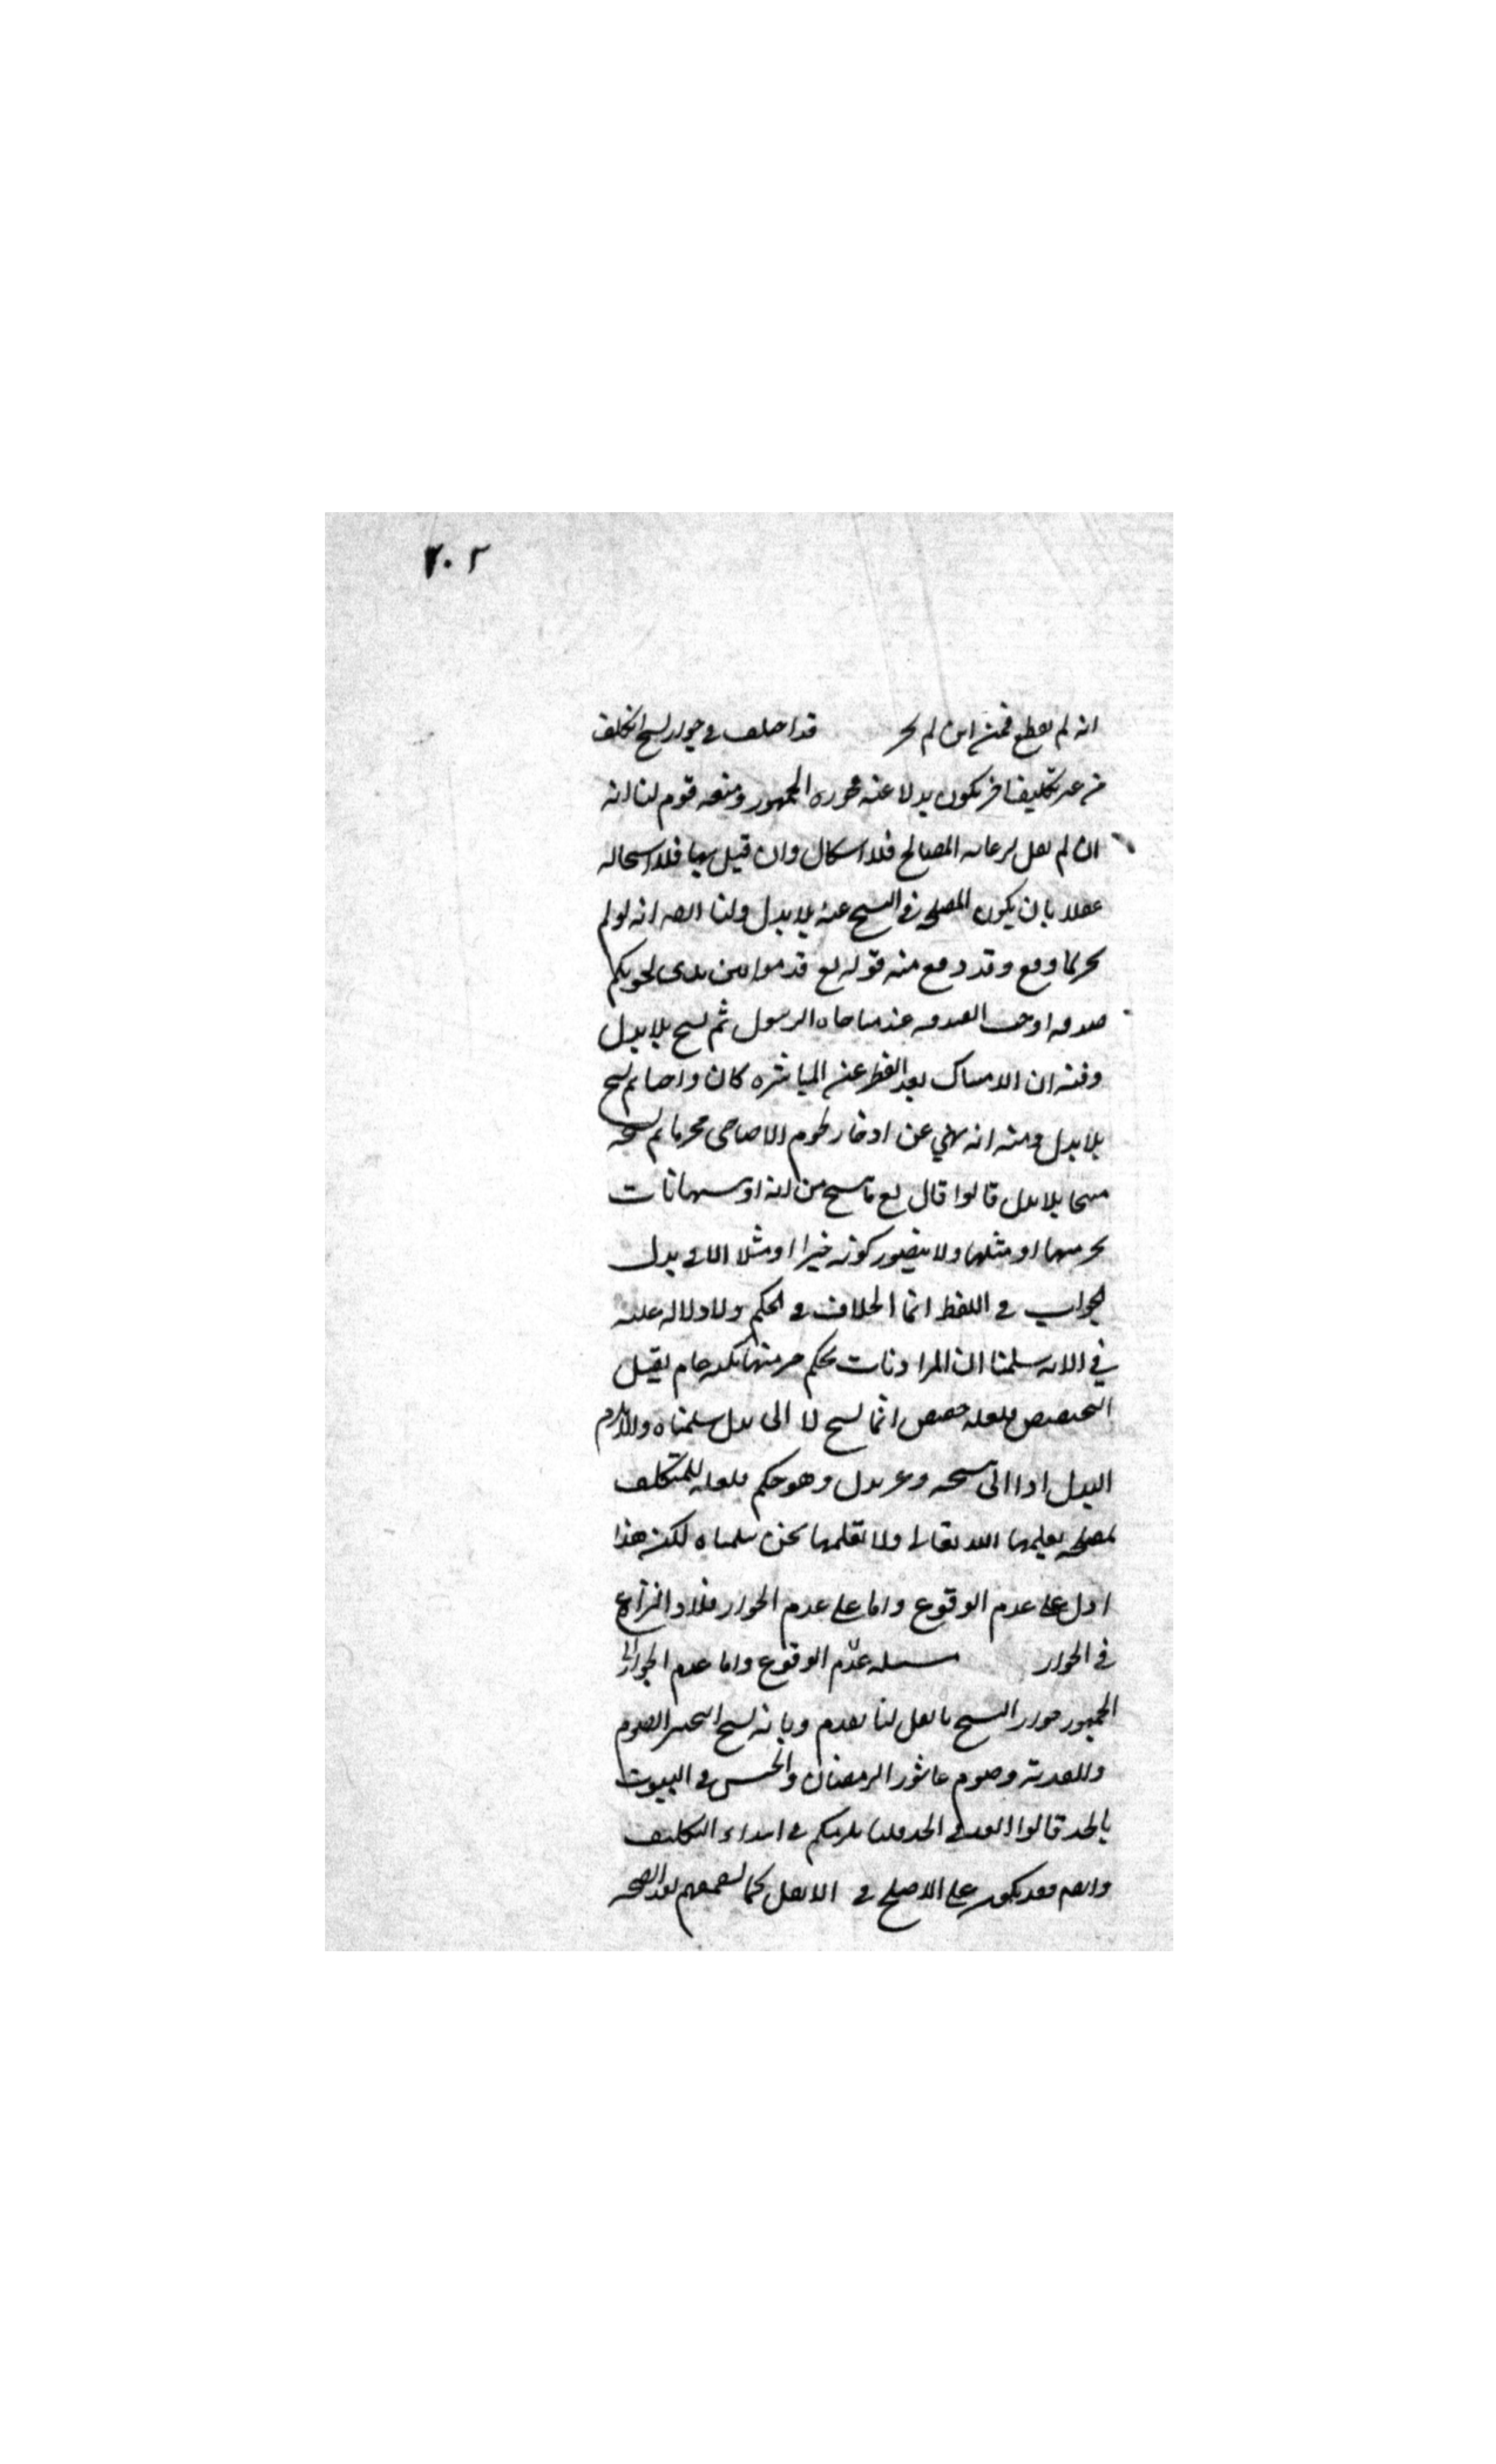 ٢٠٢
انه لم يقطع فمن اين لم يجز قد اختلف في جواز نسخ التكليف
من غير تكليف اخر يكون بدلا عنه فجوزه الجمهور ومنعه قوم لنا انه
ان لم نقل برعاية المصالح فلا اشكال وان قيل بها فلا استحالة
عقلا بان يكون المصلحة في النسخ عنه بلا بدل ولنا ايضا انه لو لم
يجز لما وقع وقد وقع منه قوله تع قدموا بين يدي نجويكم
صدقة اوجب الصدقة عند مناجاة الرسول ثم نسخ بلا بدل
ومنه ان الامساك بعد الفطر عن المباشرة كان واجبا ثم نسخ
بلا بدل ومنه انه نهي عن ادخار لحوم الاضاحي محرما ثم نسخه
مبيحا بلا بدل قالوا قال تع ما ننسخ من اية او ننسها نات
بخير منها او مثلها ولا يتصور كونه خيرا او مثلا الا في بدل
الجواب في اللفظ انما الخلاف في الحكم ولا دلالة عليه
في الاية سلمنا ان المراد نات بحكم خير منها لكنه عام يقبل
التخصيص فلعله خصص انما نسخ لا الى بدل سلمناه
البدل اذا اتى نسخه وغير بدل وهو حكم فلعله للمتكلف
لمصلحة يعلمها الله تعالى ولا نعلمها نحن سلمناه لكن هذا
ادل على عدم الوقوع واما على عدم الجواز فلا والنزاع
في الجواز مسئلة عدم الوقوع واما عدم الجواز
الجمهور جواز النسخ باثقل لنا تقدم وبانه نسخ التخيير الصوم
والفدية وصوم عاشورا لرمضان والحبس في البيوت
بالحد قالوا ابعد في قلنا يلزمكم في ابتداء التكليف
وايضا فقد يكون على الاصلح في الاثقل كما يسقمهم بعد الصحة